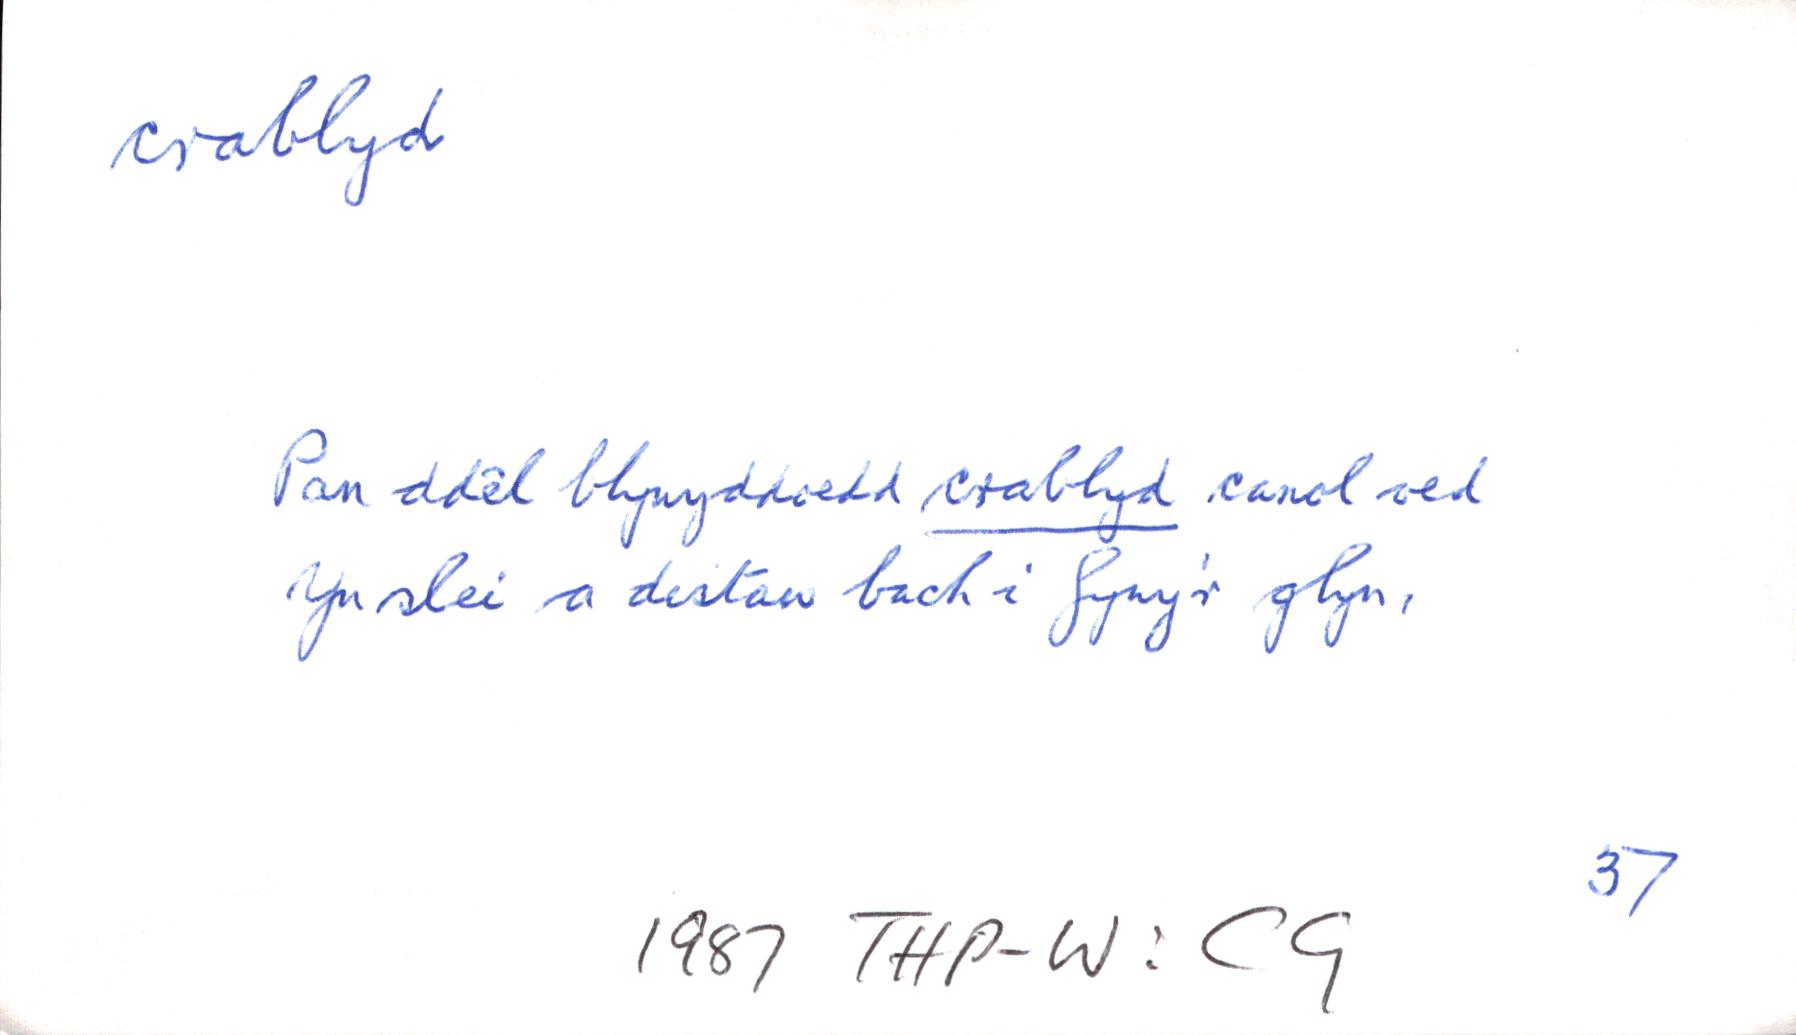 crablyd
Pan ddêl blynyddoedd crablyd canol oed
Yn slei a distaw bach i fyny'r glyn,
37
1987 THP-W: CG